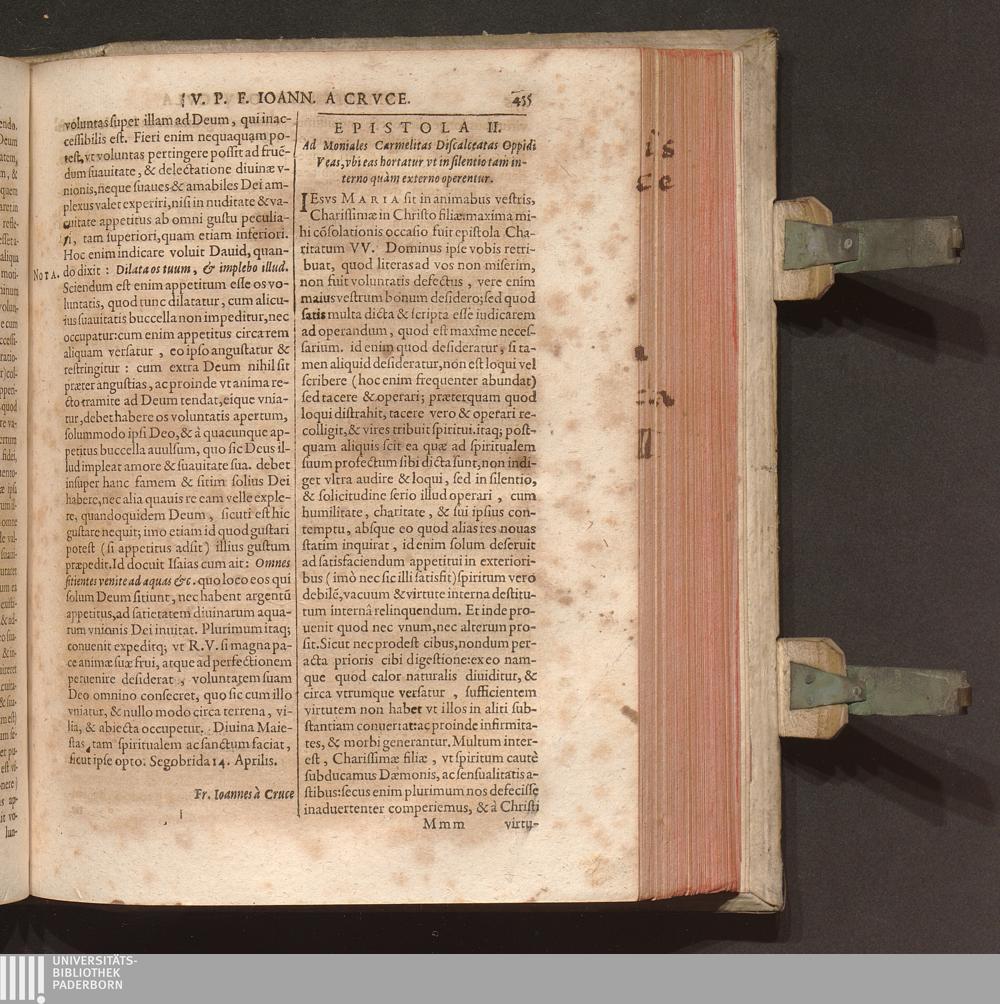 V. P. F. IOANN. A CRVCE. 455
voluntas super illam ad Deum, qui inac-
cessibilis est. Fieri enim nequaquam po-
test, vt voluntas pertingere possit ad fruē-
dum suauitate, & delectatione diuinæ v-
nionis, neque suaues & amabiles Dei am-
plexus valet experiri, nisi in nuditate & va-
cuitate appetitus ab omni gustu peculia-
ri, tam superiori, quam etiam inferiori.
Hoc enim indicare voluit Dauid, quan-
NOTA. do dixit : Dilata os tuum, & implebo illud.
Sciendum est enim appetitum esse os vo-
luntatis, quod tunc dilatatur, cum alicu-
ius suauitatis buccella non impeditur, nec
occupatur: cum enim appetitus circa rem
aliquam versatur , eo ipso angustatur &
restringitur : cum extra Deum nihil sit
præter angustias, ac proinde vt anima re-
cto tramite ad Deum tendat, eique vnia-
tur, debet habere os voluntatis apertum,
solummodo ipsi Deo, & à quacunque ap-
petitus buccella auulsum, quo sic Deus il-
lud impleat amore & suauitate sua. debet
insuper hanc famem & sitim solius Dei
habere, nec alia quauis re eam velle exple-
re, quandoquidem Deum, sicuti est hic
gustare nequit; imo etiam id quod gustari
potest (si appetitus adsit) illius gustum
præpedit. Id docuit Isaias cum ait: Omnes
sitientes venite ad aquas &c. quo loco eos qui
solum Deum sitiunt, nec habent argentū
appetitus, ad satietatem diuinarum aqua-
rum vnionis Dei inuitat. Plurimum itaq;
conuenit expeditq; vt R.V. si magna pa-
ce animæ suæ frui, atque ad perfectionem
peruenire desiderat , voluntatem suam
Deo omnino consecret, quo sic cum illo
vniatur, & nullo modo circa terrena, vi-
lia, & abiecta occupetur. Diuina Maie-
stas tam spiritualem ac sanctum faciat,
sicut ipse opto. Segobrida 14. Aprilis.
Fr. Ioannes à Cruce
EPISTOLA II.
Ad Moniales Carmelitas Discalceatas Oppidi
Veas, vbi eas hortatur vt in silentio tam in-
terno quàm externo operentur.
IESVS MARIA sit in animabus vestris,
Charissimæ in Christo filiæ. maxima mi-
hi cōsolationis occasio fuit epistola Cha-
ritatum VV. Dominus ipse vobis retri-
buat, quod literas ad vos non miserim,
non fuit voluntatis defectus , vere enim
maius vestrum bonum desidero; sed quod
satis multa dicta & scripta esse iudicarem
ad operandum, quod est maxime neces-
sarium. id enim quod desideratur, si ta-
men aliquid desideratur, non est loqui vel
scribere (hoc enim frequenter abundat)
sed tacere & operari; præterquam quod
loqui distrahit, tacere vero & operari re-
colligit, & vires tribuit spiritui. itaq; post-
quam aliquis scit ea quæ ad spiritualem
suum profectum sibi dicta sunt, non indi-
get vltra audire & loqui, sed in silentio,
& solicitudine serio illud operari , cum
humilitate, charitate, & sui ipsius con-
temptu, absque eo quod alias res nouas
statim inquirat, id enim solum deseruit
ad satisfaciendum appetitui in exteriori-
bus (imò nec sic illi satisfit) spiritum vero
debilē, vacuum & virtute interna destitu-
tum internâ relinquendum. Et inde pro-
uenit quod nec vnum, nec alterum pro-
sit. Sicut nec prodest cibus, nondum per-
acta prioris cibi digestione: ex eo nam-
que quod calor naturalis diuiditur, &
circa vtrumque versatur , sufficientem
virtutem non habet vt illos in aliti sub-
stantiam conuertat: ac proinde infirmita-
tes, & morbi generantur. Multum inter-
est , Charissimæ filiæ , vt spiritum cautè
subducamus Dæmonis, ac sensualitatis a-
stibus: secus enim plurimum nos defecisse
inaduertenter comperiemus, & à Christi
Mmm virtu-
UNIVERSITÄTS-
BIBLIOTHEK
PADERBORN